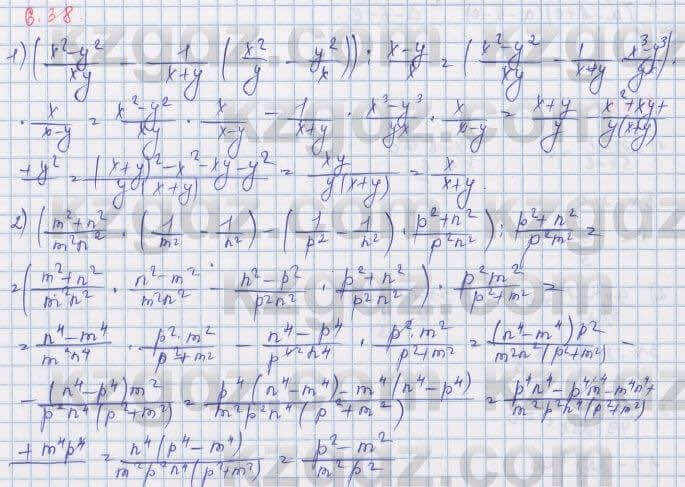 6.38.
1) ((x²-y²)/(xy) - 1/(x+y) · (x²/y - y²/x)) : (x-y)/x = ((x²-y²)/(xy) - 1/(x+y) · (x³-y³)/(yx)) ·
· x/(x-y) = (x²-y²)/(xy) · x/(x-y) - 1/(x+y) · (x³-y³)/(yx) · x/(x-y) = (x+y)/y - (x²+xy+
+y²)/(y(x+y)) = ((x+y)²-x²-xy-y²)/(y(x+y)) = xy/(y(x+y)) = x/(x+y).
2) ((m²+n²)/(m²n²) · (1/m² - 1/n²) - (1/p² - 1/n²) · (p²+n²)/(p²n²)) : (p²+n²)/(p²m²) =
= ((m²+n²)/(m²n²) · (n²-m²)/(m²n²) - (n²-p²)/(p²n²) · (p²+n²)/(p²n²)) · (p²m²)/(p²+m²) =
= (n⁴-m⁴)/(m⁴n⁴) · (p²·m²)/(p²+m²) - (n⁴-p⁴)/(p⁴n⁴) · (p²·m²)/(p²+m²) = ((n⁴-m⁴)p²)/(m²n²(p²+m²)) -
- ((n⁴-p⁴)m²)/(p²n⁴(p²+m²)) = (p⁴(n⁴-m⁴)-m⁴(n⁴-p⁴))/(m²p²n⁴(p²+m²)) = (p⁴n⁴-p⁴m⁴-m⁴n⁴+
+m⁴p⁴)/(m²p²n⁴(p²+m²)) = (n⁴(p⁴-m⁴))/(m²p²n⁴(p²+m²)) = (p²-m²)/(m²p²)